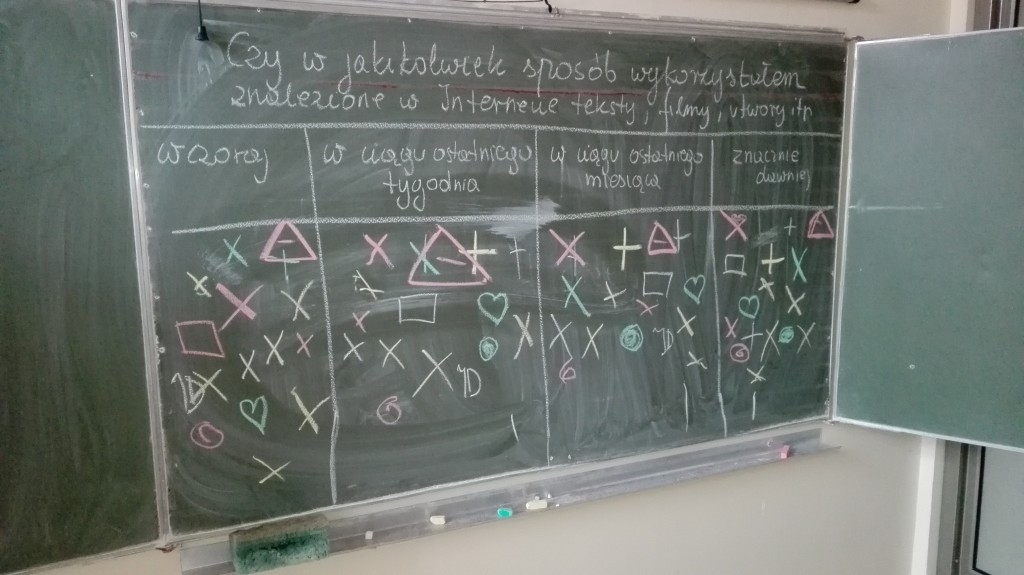 Czy w jakikolwiek sposób wykorzystałem
znalezione w Internecie teksty, filmy, utwory itp
wczoraj
w ciągu ostatniego
tygodnia
w ciągu ostatniego
miesiąca
znacznie
dawniej